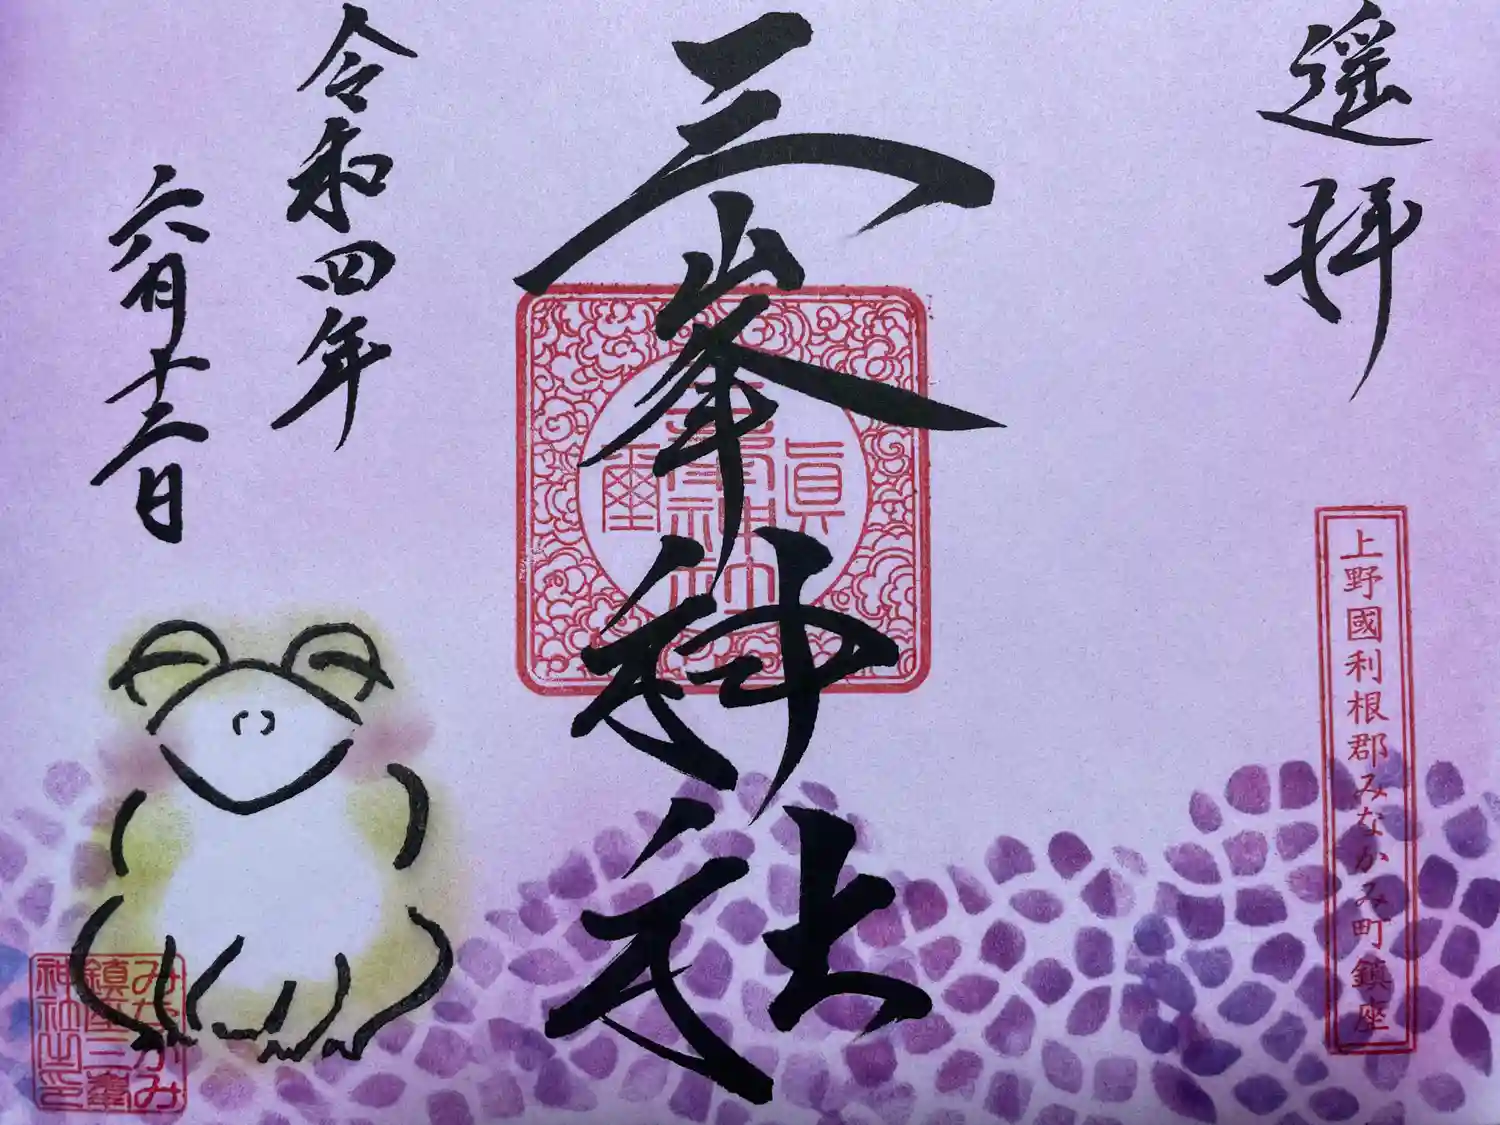 遥拝
上野國利根郡みなかみ町鎮座
三峯神社
三峯神社
眞
璽
令和四年
六月十二日
みなかみ
鎮座三峯
神社之印